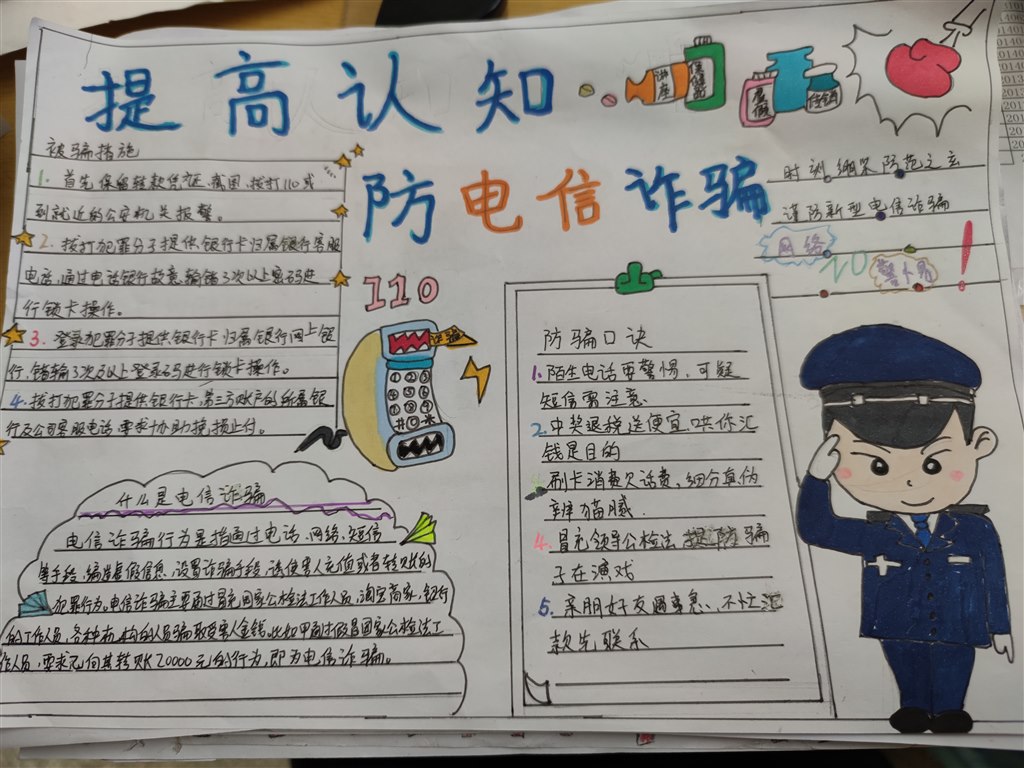 提高认知
防电信诈骗
讲座
保健品
暑假
传销
被骗措施
1. 首先保留转款凭证、截图,拨打110或
到就近的公安机关报警。
2. 拨打犯罪分子提供银行卡归属银行客服
电话,通过电话银行故意输错3次以上密码进
行锁卡操作。
3. 登录犯罪分子提供银行卡归属银行网上银
行,错输3次及以上登录码进行锁卡操作。
4. 拨打犯罪分子提供银行卡、第三方账户的所属银
行及公司客服电话要求协助挽损止付。
时刻绷紧防范之玄
谨防新型电信诈骗
网络
NO
110
诈骗
1 2 3
4 5 6
7 8 9
# 0 *
防骗口诀
1. 陌生电话要警惕,可疑
短信需注意
2. 中奖退税送便宜 哄你汇
钱是目的
刷卡消费欠话费,细分真伪
辨猫腻
4. 冒充领导公检法 骗
子在演戏
5. 亲朋好友遇事急、不忙汇
款先联系
什么是电信诈骗
电信诈骗行为是指通过电话、网络、短信
等手段,编造虚假信息,设置诈骗手段,诱使害人充值或者转账的
犯罪行为。电信诈骗主要通过冒充国家公检法工作人员,淘宝商家,银行
的工作人员,各种机构的人员骗取受害人金钱。比如甲通过假冒国家公检法工
作人员,要求乙向其转账20000元的行为,即为电信诈骗。